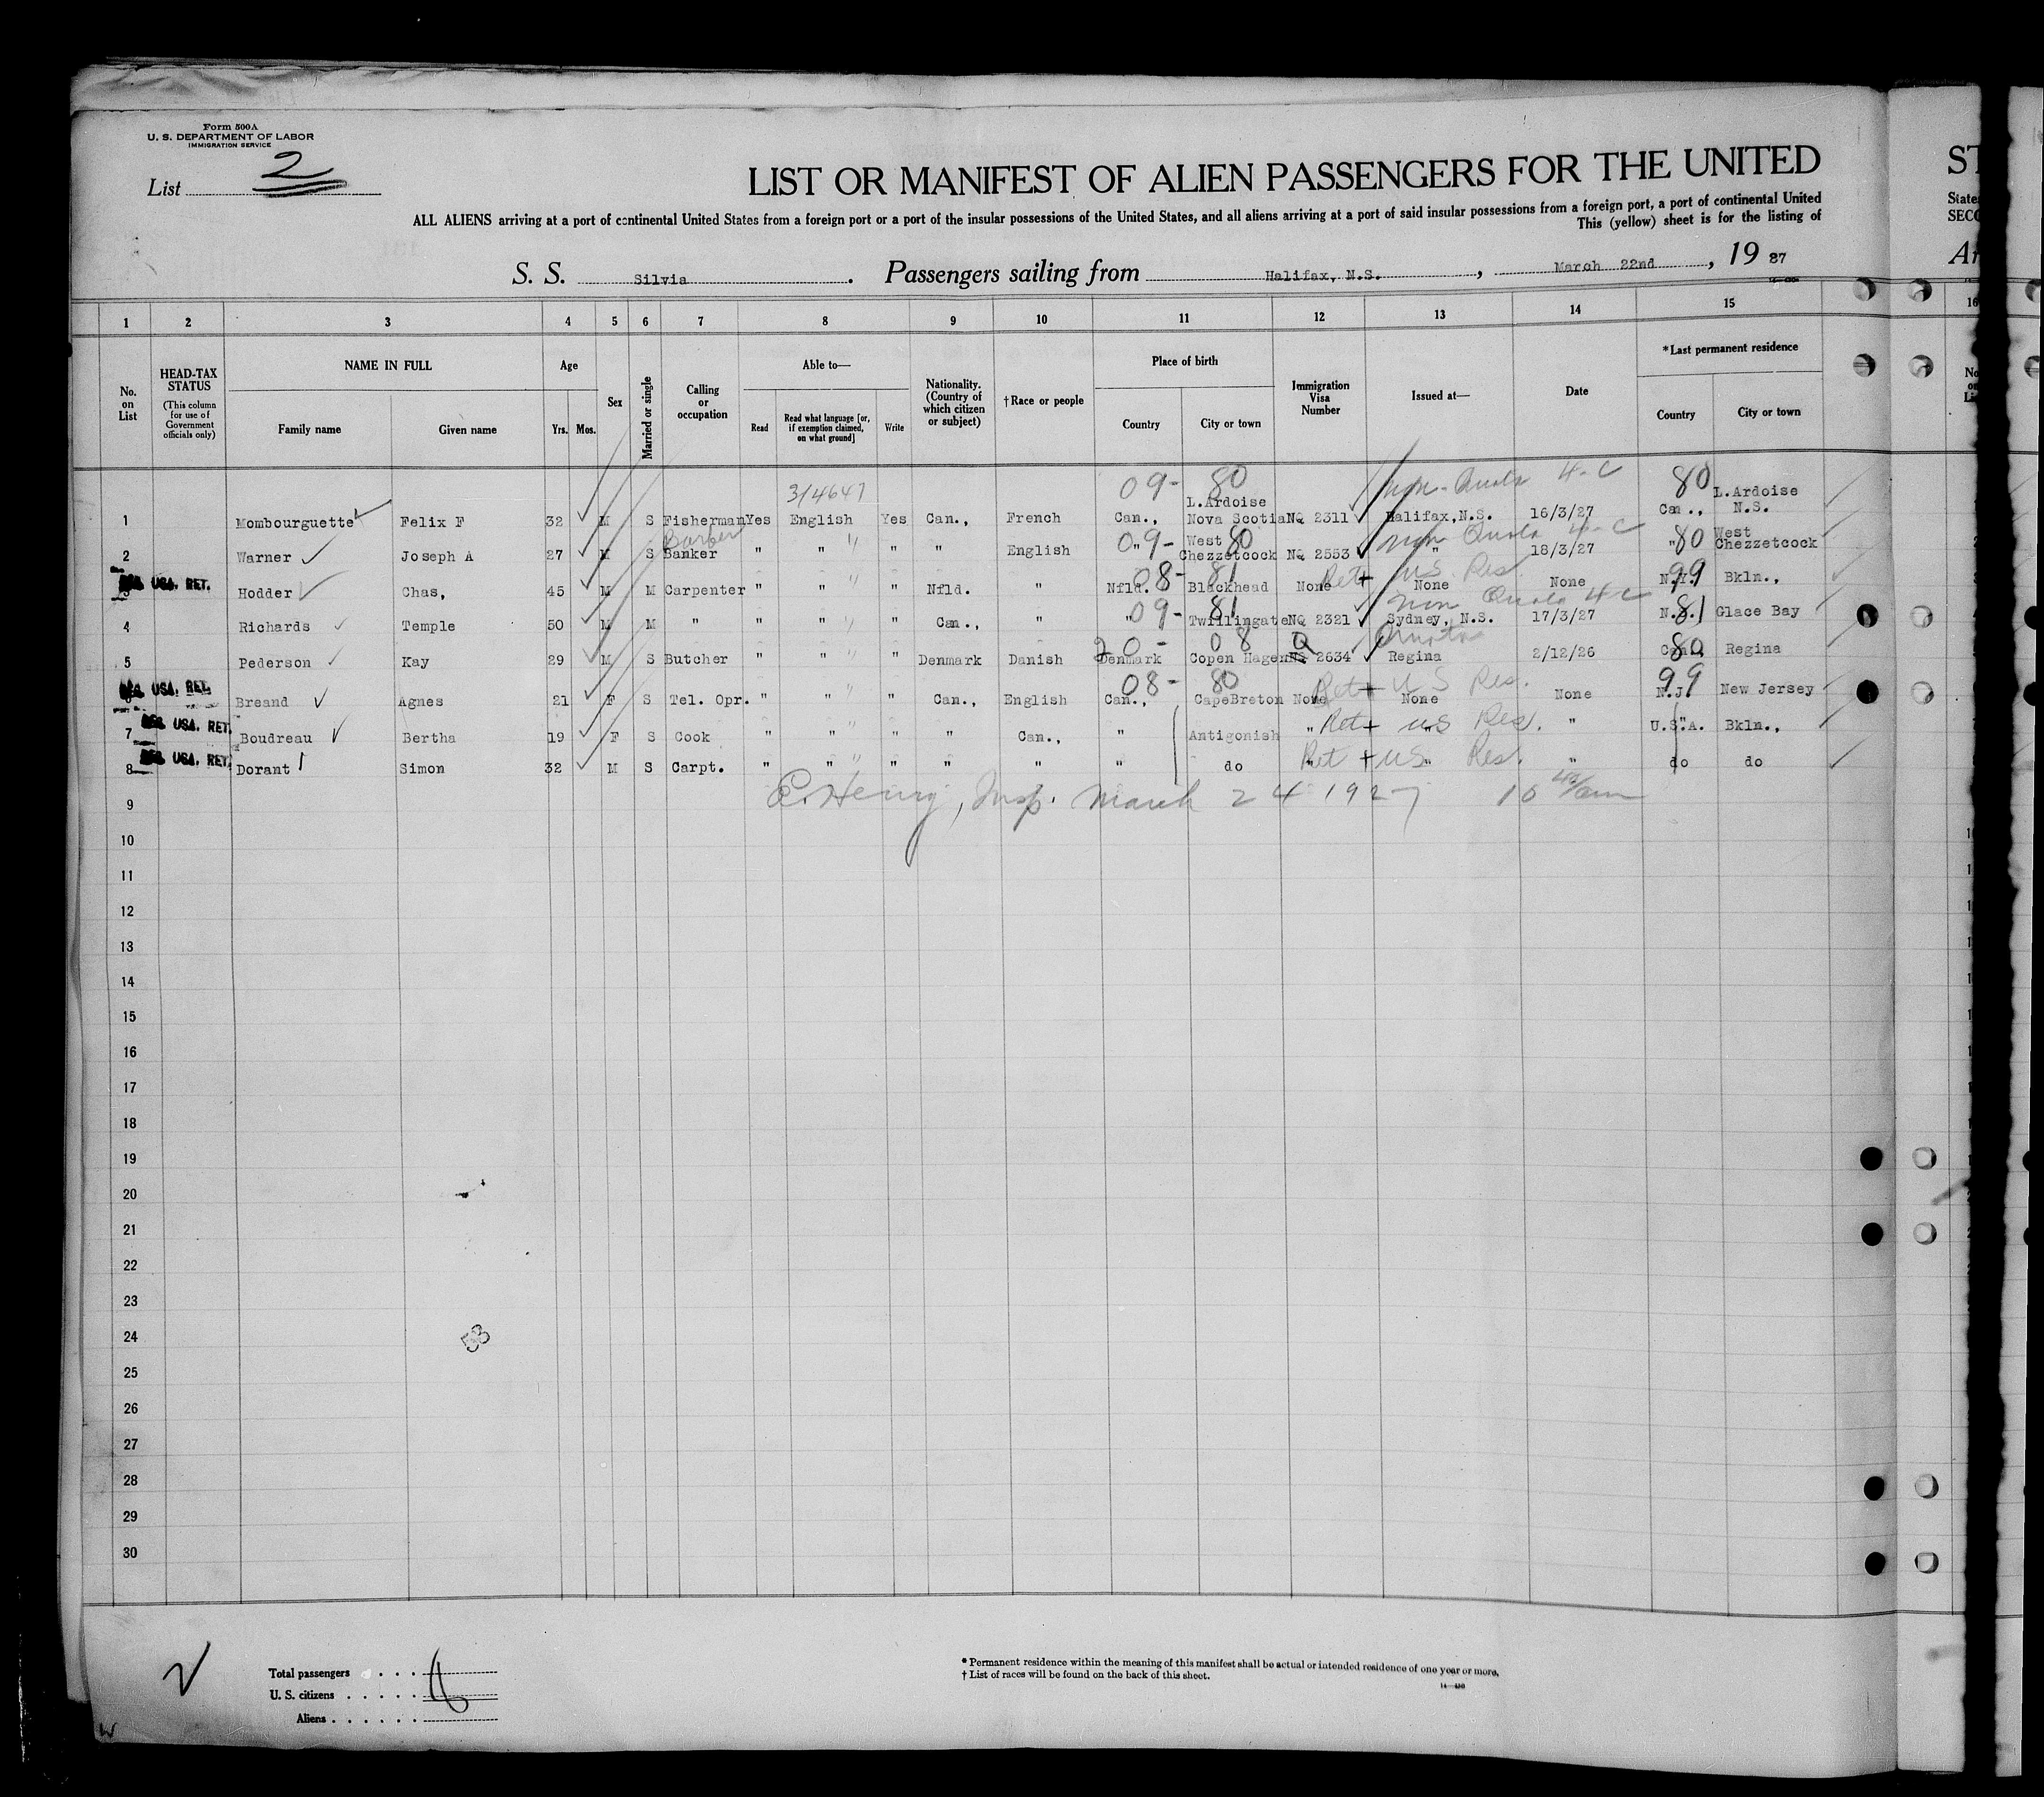 Form 500A
U. S. DEPARTMENT OF LABOR
IMMIGRATION SERVICE
List 2
LIST OR MANIFEST OF ALIEN PASSENGERS FOR THE UNITED
ALL ALIENS arriving at a port of continental United States from a foreign port or a port of the insular possessions of the United States, and all aliens arriving at a port of said insular possessions from a foreign port, a port of continental United
This (yellow) sheet is for the listing of
S. S. Silvia. Passengers sailing from Halifax, N.S., March 22nd, 19 27
1 2 3 4 5 6 7 8 9 10 11 12 13 14 15
No. on List
HEAD-TAX STATUS
(This column for use of Government officials only)
NAME IN FULL
Family name Given name
Age
Yrs. Mos.
Sex
Married or single
Calling or occupation
Able to—
Read
Read what language [or, if exemption claimed, on what ground]
Write
Nationality. (Country of which citizen or subject)
†Race or people
Place of birth
Country City or town
Immigration Visa Number
Issued at—
Date
*Last permanent residence
Country City or town
314647 09- 80 Non-Quota 4-C 80
1 Mombourguette Felix F 32 M S Fisherman Yes English Yes Can., French Can., L.Ardoise Nova Scotia NQ 2311 Halifax,N.S. 16/3/27 Can., L.Ardoise N.S.
Barber 09- 80 Non Quota 4-C 80
2 Warner Joseph A 27 M S Banker " " " " English " West Chezzetcock NQ 2553 " 18/3/27 " West Chezzetcock
USA. RET. 08- 81 Ret + US Res. 99
3 Hodder Chas, 45 M M Carpenter " " " Nfld. " Nfld. Blackhead None None None N.Y. Bkln.,
09- 81 Non Quota 4-C 81
4 Richards Temple 50 M M " " " " Can., " " Twillingate NQ 2321 Sydney, N.S. 17/3/27 N.S. Glace Bay
20- 08 Q Quota 80
5 Pederson Kay 29 M S Butcher " " " Denmark Danish Denmark Copen Hagen NQ 2634 Regina 2/12/26 Can., Regina
USA. RET. 08- 80 Ret + US Res. 99
6 Breand Agnes 21 F S Tel. Opr. " " " Can., English Can., CapeBreton None None None N.J. New Jersey
USA. RET. Ret + US Res.
7 Boudreau Bertha 19 F S Cook " " " " Can., " Antigonish " " " U.S.A. Bkln.,
USA. RET. Ret + US Res.
8 Dorant Simon 32 M S Carpt. " " " " " " do " " " do do
E. Henry, Insp. March 24 1927
9
10
11
12
13
14
15
16
17
18
19
20
21
22
23
24
25
26
27
28
29
30
53
Total passengers
U. S. citizens
Aliens
* Permanent residence within the meaning of this manifest shall be actual or intended residence of one year or more.
† List of races will be found on the back of this sheet.